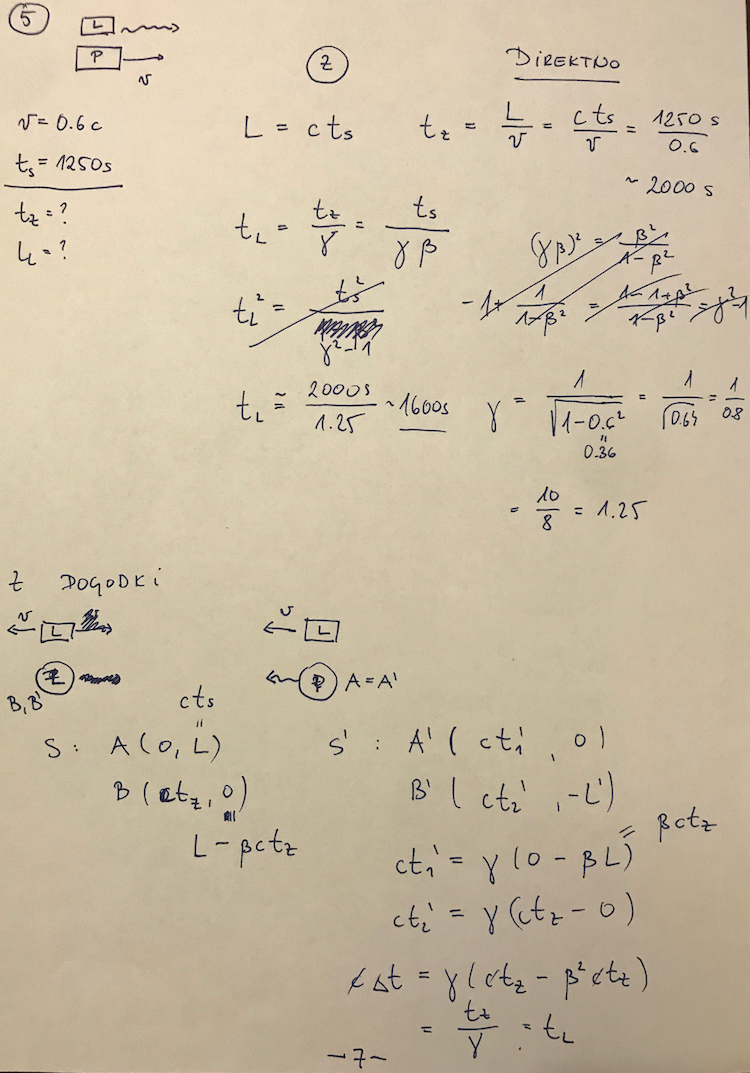 5
L
P
v
Z
DIREKTNO
v = 0.6 c
t_s = 1250 s
t_z = ?
t_L = ?
L = c t_s
t_z = L/v = c t_s/v = 1250 s/0.6
~ 2000 s
t_L = t_z/γ = t_s/(γ β)
(γβ)² = β²/(1-β²)
t_L² = t_s²/(γ²-1)
-1 + 1/(1-β²) = (1-1+β²)/(1-β²) = γ²-1
t_L ≅ 2000s/1.25 ~ 1600s
γ = 1/√(1-0.6²) = 1/√0.64 = 1/0.8
0.36
= 10/8 = 1.25
Z DOGODKI
v L
v L
Z
P A=A'
B, B'
c t_s
S: A (0, L)
S': A' ( ct_1', 0)
B (ct_z, 0)
B' ( ct_2', -L')
L - βct_z
ct_1' = γ (0 - βL)
= βct_z
ct_2' = γ (ct_z - 0)
c Δt = γ (ct_z - β² ct_z)
= t_z/γ = t_L
-7-